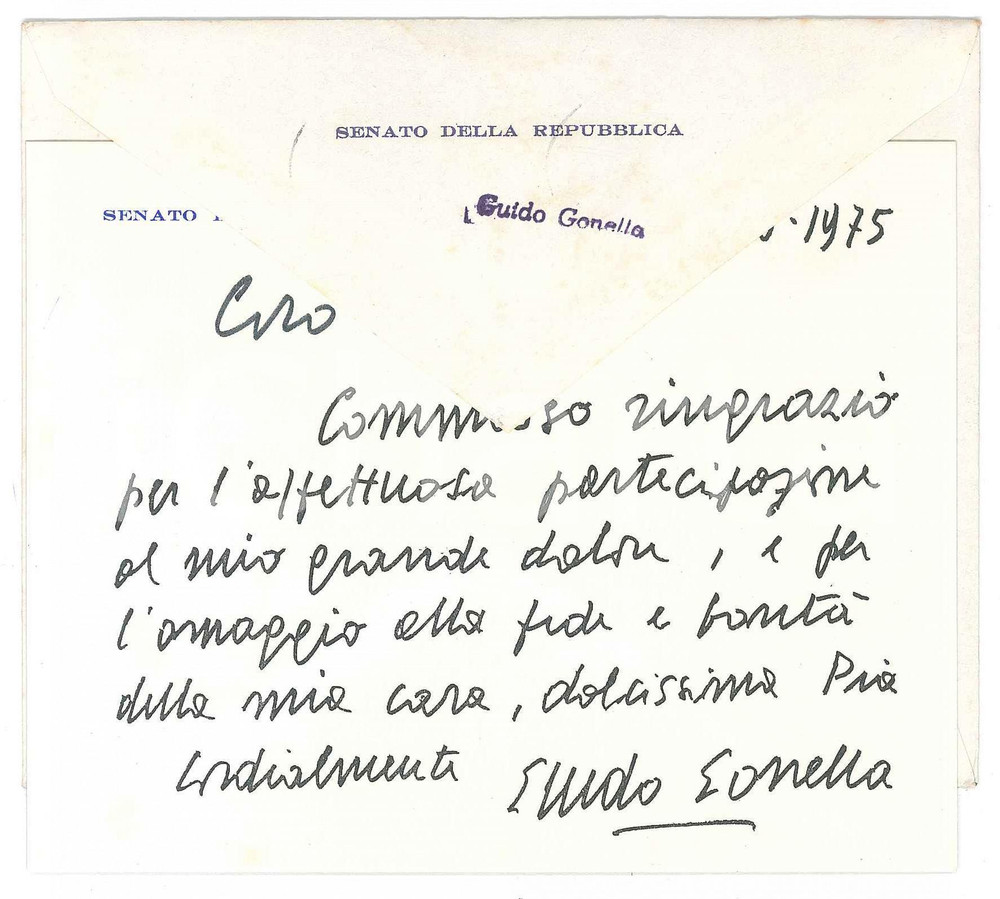 SENATO DELLA REPUBBLICA
Guido Gonella
SENATO
1975
Caro
Commosso ringrazio
per l'affettuosa partecipazione
al mio grande dolore, e per
l'omaggio alla fede e bontà
della mia cara, dolcissima Pia
Cordialmente Guido Gonella